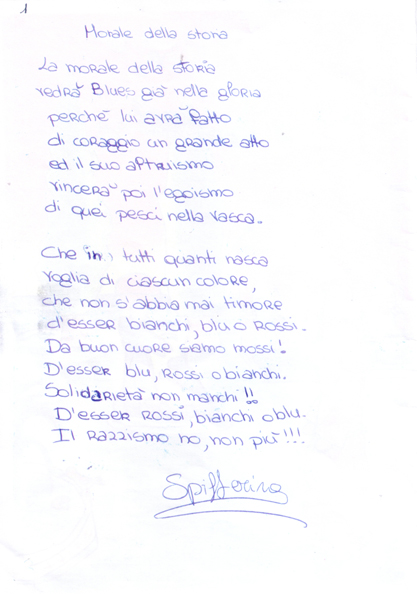 1
Morale della storia
La morale della storia
vedrà Blues già nella gloria
perché lui avrà fatto
di coraggio un grande atto
ed il suo altruismo
vincerà poi l'egoismo
di quei pesci nella vasca..
Che in tutti quanti nasca
voglia di ciascun colore,
che non s'abbia mai timore
d'esser bianchi, blu o rossi.
Da buon cuore siamo mossi!
D'esser blu, rossi o bianchi.
Solidarietà non manchi!!
D'esser rossi, bianchi o blu.
Il razzismo no, non più!!!
Spifferina